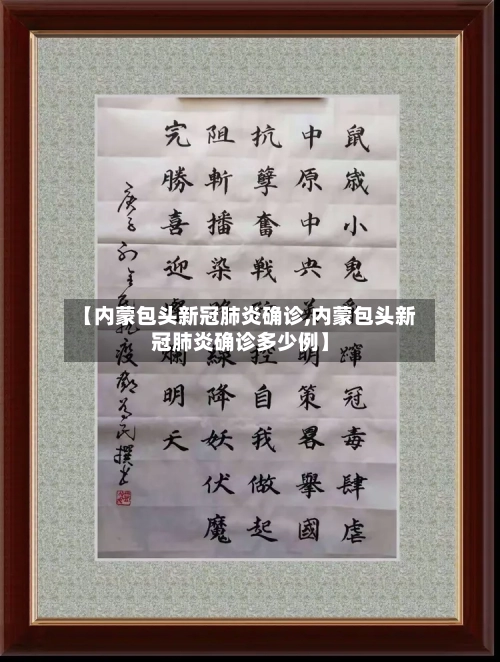 鼠歲小鬼冠毒肆虐
中原中央明策畧舉國
抗孽奮戰控自我做起
阻斬播染線降妖伏魔
完勝喜迎爛明天
庚子疫民撰書
【内蒙包头新冠肺炎确诊,内蒙包头新
冠肺炎确诊多少例】